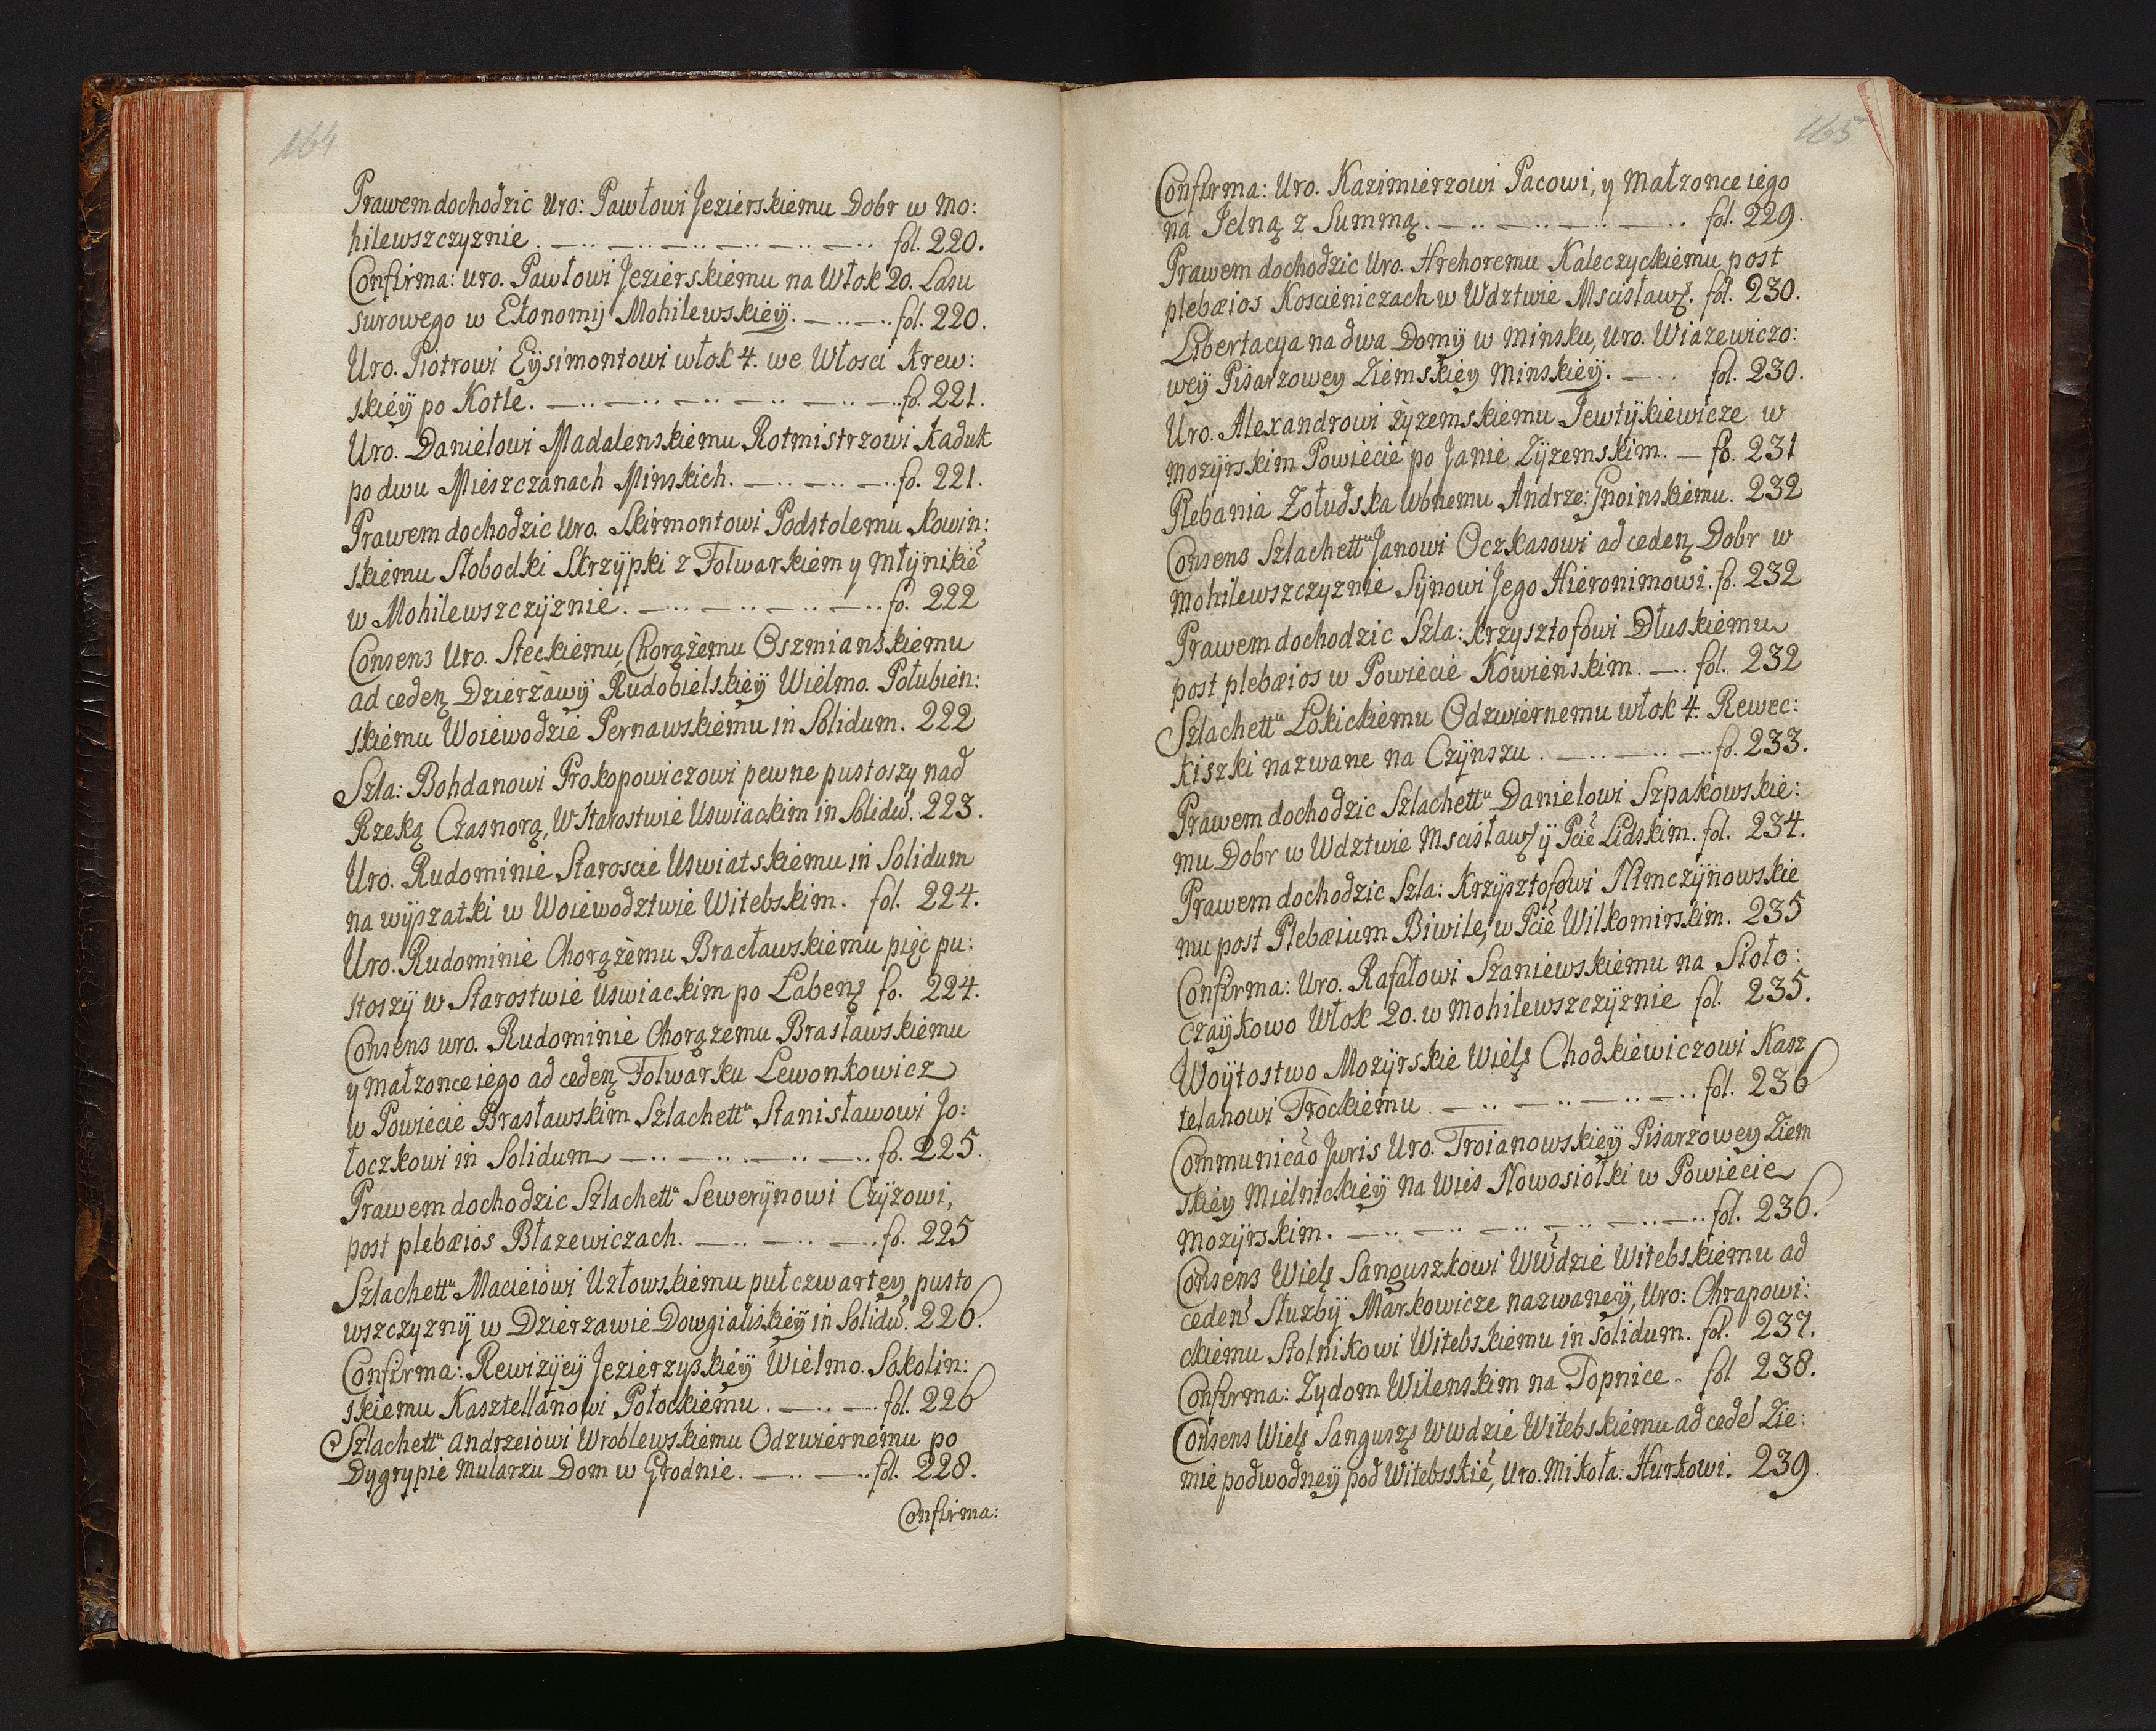 164
Prawem dochodzic Uro: Pawłowi Jezierskiemu Dobr w Mo:
hilewszczyznie. fol. 220.
Confirma: Uro. Pawłowi Jezierskiemu na Włok 20. Lasu
surowego w Ekonomij Mohilewskieÿ. fol. 220.
Uro. Piotrowi Eÿsimontowi włok 4. we Włosci Krew:
skieÿ po Kotle. fo. 221.
Uro. Danielowi Madalenskiemu Rotmistrzowi Kaduk
po dwu Mieszczanach Minskich. fo. 221.
Prawem dochodzic Uro. Skirmontowi Podstolemu Kowin:
skiemu Słobodki Skrzÿpki z Folwarkiem y Młÿnikiē
w Mohilewszczÿznie. fo. 222
Consens Uro. Steckiemu Chorążemu Oszmianskiemu
ad cedeņ Dzierżawÿ Rudobielskieÿ Wielmo. Połubien:
skiemu Woiewodzie Pernawskiemu in Solidum. 222
Szla: Bohdanowi Prokopowiczowi pewne pustoszy nad
Rzeką Czasnorą, W Starostwie Uswiackim in Solidū. 223.
Uro. Rudominie Staroscie Uswiatskiemu in Solidum
na wÿszatki w Woiewodztwie Witebskim. fol. 224.
Uro. Rudominie Chorążemu Bracławskiemu pięc pu:
stoszÿ w Starostwie Uswiackim po Labenz fo. 224.
Consens uro. Rudominie Chorążemu Brasławskiemu
y małzonce iego ad cedeņ Folwarku Lewonkowicz
w Powiecie Brasławskim Szlachettu Stanisławowi Jo:
łoczkowi in Solidum fo. 225.
Prawem dochodzic Szlachettu Sewerÿnowi Czÿzowi,
post plebæios Błazewiczach. fo. 225
Szlachettu Macieiowi Uzłowskiemu puł czwartey pusto
wszczyznÿ w Dzierzawie Dowgialiskieÿ in Solidū. 226.
Confirma: Rewizÿeÿ Jezierzyskieÿ Wielmo. Sokolin:
skiemu Kasztellanowi Połockiemu. fol. 226
Szlachettu Andrzeiowi Wroblewskiemu Odzwiernemu po
Dygrypie Mularzu Dom w Grodnie. fol. 228.
Confirma:
165
Confirma: Uro. Kazimierzowi Pacowi, y Małzonce iego
na Jelną z Summą. fol. 229.
Prawem dochodzic Uro. Hrehoremu Kaleczyckiemu post
plebæios Koscieniczach w Wdztwie Mscisławȝ. fol. 230.
Libertacya na dwa Domÿ w Minsku, Uro. Wiazewiczo:
weÿ Pisarzowey Ziemskiey Minskieÿ. fol. 230.
Uro. Alexandrowi Zÿzemskiemu Jewtÿkiewicze w
Mozÿrskim Powiecie po Janie Zÿzemskim. fo. 231
Plebania Zołudska Wbnemu Andrze: Gnoinskiemu. 232
Consens Szlachettu Janowi Oczkasowi ad cedeņ Dobr w
Mohilewszczyznie Sÿnowi Jego Hieronimowi. fo. 232
Prawem dochodzic Szla: Krzysztofowi Dłuskiemu
post plebæios w Powiecie Kowienskim. fol. 232
Szlachettu Łokickiemu Odzwiernemu włok 4. Rewec:
kiszki nazwane na Czÿnszu. fo. 233.
Prawem dochodzic Szlachettu Danielowi Szpakowskie:
mu Dobr w Wdztwie Mscisławȝ ÿ Pcie Lidskim. fol. 234.
Prawem dochodzic Szla: Krzÿsztofowi Nimczÿnowskie
mu post Plebæium Biwile, w Pcie Wilkomirskim. 235
Confirma: Uro. Rafałowi Szaniewskiemu na Stoło:
czaÿkowo Włok 20. w Mohilewszczÿznie fol. 235.
Woÿtostwo Mozÿrskie Wielȝ Chodkiewiczowi Kasz
telanowi Trockiemu. fol. 236
Communicāo Juris Uro. Troianowskieÿ Pisarzowey Ziem
skiey Mielnickieÿ na Wies Nowosiołki w Powiecie
Mozÿrskim. fol. 236.
Consens Wielȝ Sanguszkowi WWdzie Witebskiemu ad
ceden̄ Służbÿ Markowicze nazwaneÿ, Uro: Chrapowi:
ckiemu Stolnikowi Witebskiemu in solidum. fol. 237.
Confirma: Zydom Wilenskim na Topnice. fol 238.
Consens Wielȝ Sanguszȝ WWdzie Witebskiemu ad cedē Zie:
mie podwodneÿ pod Witebsskiē, Uro. Mikoła: Hurkowi. 239.